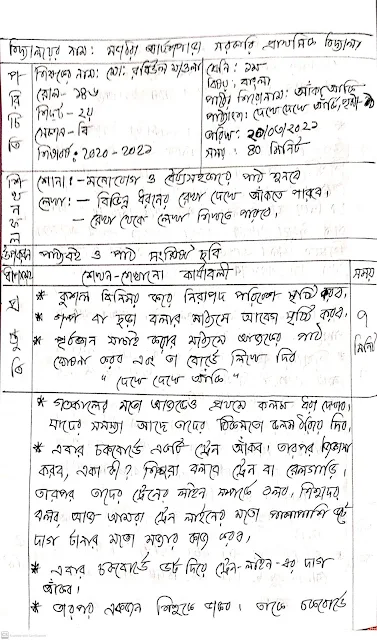 বিদ্যালয়ের নাম: সরকারি প্রাথমিক বিদ্যালয়
পরিচিতি
শিক্ষকের নাম: মো:
রোল- ১৪৬
শিফট- ২য়
সেকশন- বি
শিক্ষাবর্ষ: ২০২০ - ২০২১
শ্রেণি: ১ম
বিষয়: বাংলা
পাঠের শিরোনাম: আঁকাআঁকি
পাঠ্যাংশ: দেখে দেখে আঁকি,
তারিখ: ২০/০৩/২০২১
সময়: ৪০ মিনিট
শিখনফল
শোনা: - মনোযোগ ও ধৈর্যসহকারে পাঠ শুনবে
লেখা: - বিভিন্ন ধরনের রেখা দেখে আঁকতে পারবে।
- রেখা থেকে লেখা শিখতে পারবে।
উপকরণ পাঠ্যবই ও পাঠ সংশ্লিষ্ট ছবি
শেখন-শেখানো কার্যাবলী সময়
প্রস্তুতি
* কুশল বিনিময় করে নিরাপদ পরিবেশ সৃষ্টি করব,
* গল্প বা ছড়া বলার মাধ্যমে আবেগ সৃষ্টি করব,
* পূর্বজ্ঞান যাচাই করার মাধ্যমে আজকের পাঠ
ঘোষনা করব এবং তা বোর্ডে লিখে দিব
" দেখে দেখে আঁকি "
৭ মিনিট
* গতকালের মতো আজকেও প্রথমে কলম ধরা দেখাব।
যাদের সমস্যা আছে তাদের ঠিকমতো কলম ধরিয়ে দিব,
* এবার চকবোর্ডে একটি ট্রেন আঁকব। তারপর জিজ্ঞাসা
করব, এটা কী? শিশুরা বলবে ট্রেন বা রেলগাড়ি।
তারপর তাদের ট্রেনের লাইন সম্পর্কে বলব, শিশুদের
বলব আজ আমরা ট্রেন লাইনের মতো পাশাপাশি দুই
দাগ টানার মতো মজার কাজ করব,
* এবার চকবোর্ডে ডট দিয়ে ট্রেন-লাইন-এর দাগ
আঁকব।
* তারপর একজন শিশুকে ডাকব। তাকে চকবোর্ডে